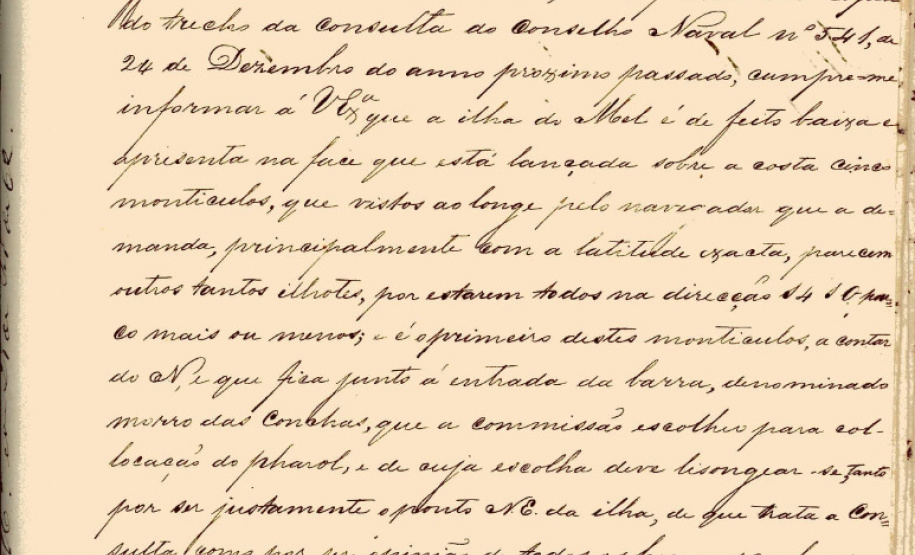 do trecho da consulta do Conselho Naval nº 541, de
24 de Dezembro do anno proximo passado, cumpre-me
informar á VExª que a ilha do Mel é de feito baixa e
apresenta na face que está lançada sobre a costa cinco
monticulos, que vistos ao longe pelo navegador que a de=
manda, principalmente com a latitude exacta, parecem
outros tantos ilhotes, por estarem todos na direcção
co mais ou menos; e é o primeiro destes monticulos, a contar
do N, e que fica junto á entrada da barra, denominado
morro das Conchas, que a commissão escolheu para col-
locação do pharol, e de cuja escolha deve lisongear-se, tanto
por ser justamente o ponto NE. da ilha, de que trata a Con=
sulta como por ser opinião de todos